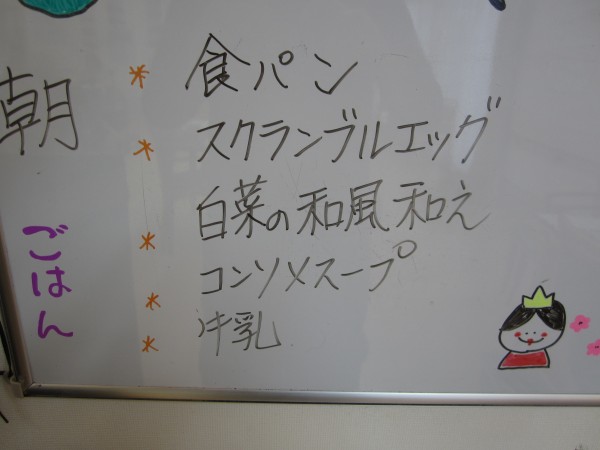 朝ごはん
* 食パン
* スクランブルエッグ
* 白菜の和風和え
* コンソメスープ
* 牛乳